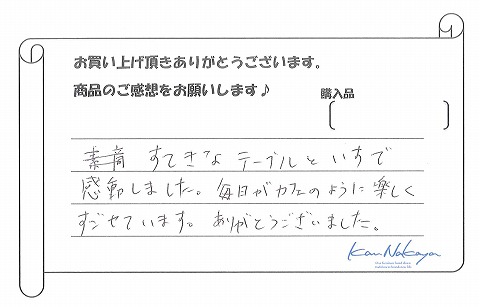 お買い上げ頂きありがとうございます。
商品のご感想をお願いします♪
購入品
すてきな テーブルと いすで
感動しました。毎日がカフェのように楽しく
すごせています。ありがとうございました。